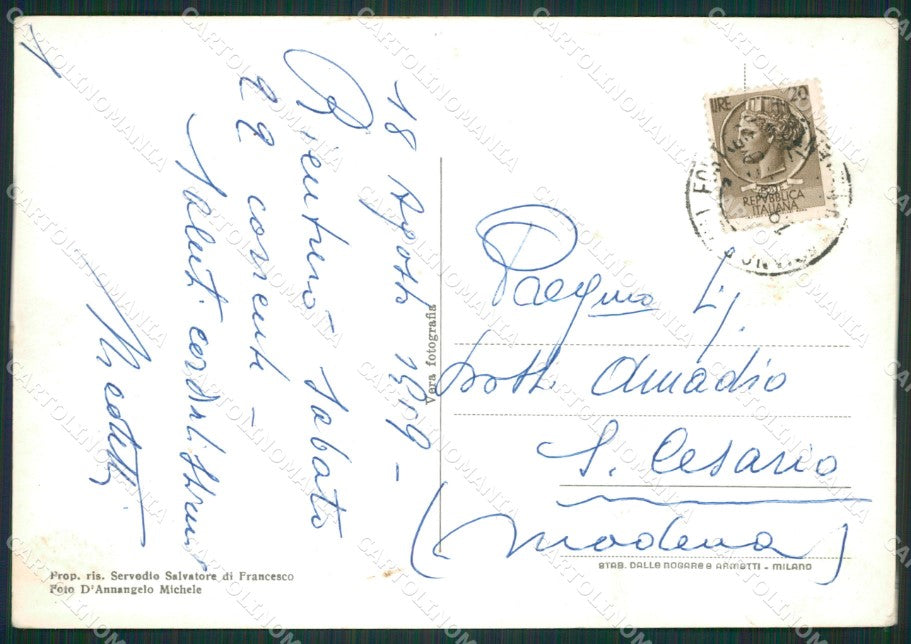 18 Agosto 1959 -
Rientrerò Sabato
22 corrente -
Saluti cordialissimi
Preg.mo Sig.
Dott. Amadio
S. Cesario
(Modena)
Vera fotografia
LIRE 20
REPVBBLICA
ITALIANA
Prop. ris. Servodio Salvatore di Francesco
Foto D'Annangelo Michele
STAB. DALLE NOGARE e ARMETTI - MILANO
CARTOLINOMANIA